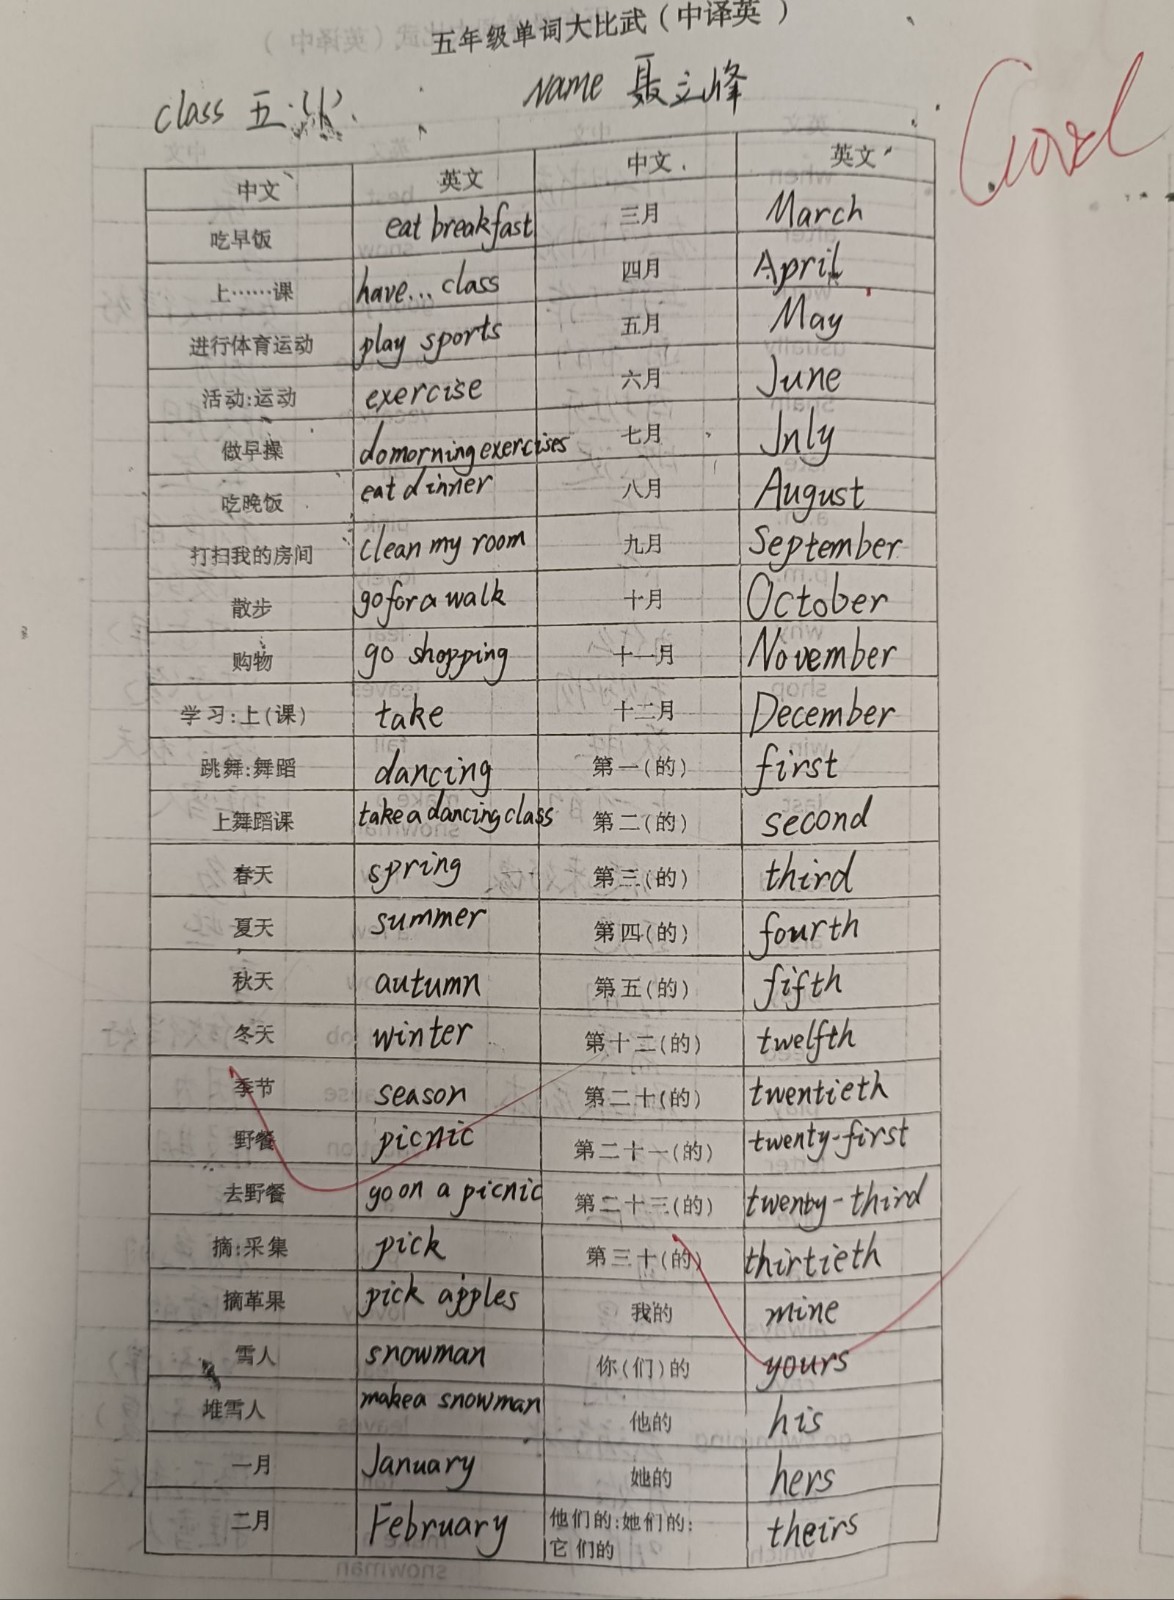 五年级单词大比武（中译英 ）
Class 五 Name 聂立峰
Good
中文 英文 中文 英文
吃早饭 eat breakfast 三月 March
上……课 have... class 四月 April
进行体育运动 play sports 五月 May
活动:运动 exercise 六月 June
做早操 do morning exercises 七月 July
吃晚饭 eat dinner 八月 August
打扫我的房间 clean my room 九月 September
散步 go for a walk 十月 October
购物 go shopping 十一月 November
学习:上(课) take 十二月 December
跳舞:舞蹈 dancing 第一(的) first
上舞蹈课 take a dancing class 第二(的) second
春天 spring 第三(的) third
夏天 summer 第四(的) fourth
秋天 autumn 第五(的) fifth
冬天 winter 第十二(的) twelfth
季节 season 第二十(的) twentieth
野餐 picnic 第二十一(的) twenty-first
去野餐 go on a picnic 第二十三(的) twenty-third
摘:采集 pick 第三十(的) thirtieth
摘苹果 pick apples 我的 mine
雪人 snowman 你(们)的 yours
堆雪人 make a snowman 他的 his
一月 January 她的 hers
二月 February 他们的:她们的:
它们的 theirs